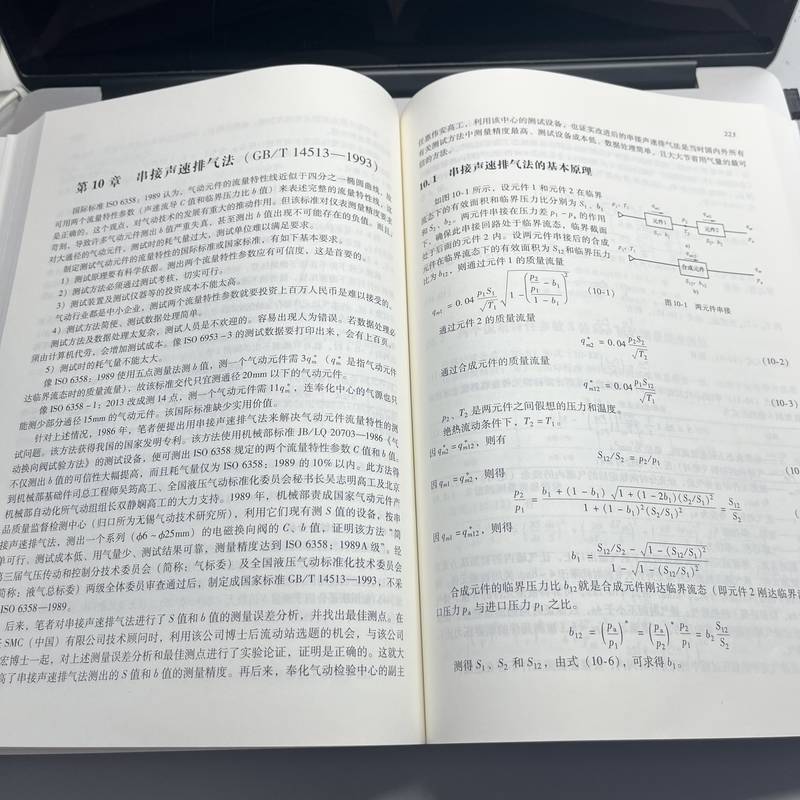 第 10 章 串接声速排气法（GB/T 14513—1993）
国际标准 ISO 6358：1989 认为，气动元件的流量特性线近似于四分之一椭圆曲线，故
可用两个流量特性参数（声速流导 C 值和临界压力比 b 值）来表述完整的流量特性线，这
是正确的。这个观点，对气动技术的发展有重大的推动作用。但该标准对仪表测量精度要求
苛刻，导致许多气动元件测出 b 值严重失真，甚至测出 b 值出现不可能存在的负值。而且，
对大通径的气动元件，测试时的耗气量过大，测试单位难以满足要求。
制定测试气动元件的流量特性的国际标准或国家标准，有如下基本要求。
1）测试原理要有科学依据。测出两个流量特性参数应有可信度，这是首要的。
2）测试方法必须通过测试考核，切实可行。
3）测试装置及测试仪器等的投资成本不能太高。
气动行业都是中小企业，测试两个流量特性参数就要投资上百万人民币是难以接受的。
4）测试方法简便、测试数据处理简单。
测试方法及数据处理太复杂，测试人员是不欢迎的。容易出现人为错误。若数据处理必
须由计算机代劳，会增加测试成本。像 ISO 6953－3 的测试数据要打印出来，会有上百页。
5）测试时的耗气量不能太大。
像 ISO 6358：1989 使用五点测量法测 b 值，测一个气动元件需 3q*m（q*m 是指气动元件
达临界流态时的质量流量），故该标准交代只宜测通径 20mm 以下的气动元件。
像 ISO 6358－1：2013 改成测 14 点，测一个气动元件需 11q*m，连奉化中心的气源也只
能测少部分通径 15mm 的气动元件。该国际标准缺少实用价值。
针对上述情况，1986 年，笔者便提出用串接声速排气法来解决气动元件流量特性的测
试问题。该方法获得我国的国家发明专利。该方法使用机械部标准 JB/LQ 20703—1986《气
动换向阀试验方法》的测试设备，便可测出 ISO 6358 规定的两个流量特性参数 C 值和 b 值。
不仅测出 b 值的可信性大幅提高，而且耗气量仅为 ISO 6358：1989 的 10% 以内。此方法得
到机械部基础件司总工程师吴筠高工、全国液压气动标准化委员会秘书长吴志明高工及北京
机械部自动化所气动组组长双静娴高工的大力支持。1989 年，机械部责成国家气动元件产
品质量监督检测中心（归口所为无锡气动技术研究所），利用它们现有测 S 值的设备，按串
接声速排气法，测出一个系列（ϕ6～ϕ25mm）的电磁换向阀的 C、b 值，证明该方法“简
单可行、测试成本低、用气量少、测试结果可靠，测量精度达到 ISO 6358：1989A 级”。经
第三届气压传动和控制分技术委员会（简称：气标委）及全国液压气动标准化技术委员会
简称：液气总标委）两级全体委员审查通过后，制定成国家标准 GB/T 14513—1993，不采
ISO 6358—1989。
后来，笔者对串接声速排气法进行了 S 值和 b 值的测量误差分析，并找出最佳测点。在
SMC（中国）有限公司技术顾问时，利用该公司博士后流动站选题的机会，与该公司
宏博士一起，对上述测量误差分析和最佳测点进行了实验论证，证明是正确的。这就大
高了串接声速排气法测出的 S 值和 b 值的测量精度。再后来，奉化气动检验中心的副主
223
任焦伟安高工，利用该中心的测试设备，也证实改进后的串接声速排气法是当时国内外所有
有关测试方法中测量精度最高、测试设备成本低、数据处理简单、且大大节省用气量的最可
信的方法。
10.1 串接声速排气法的基本原理
如图 10-1 所示，设元件 1 和元件 2 在临界
流态下的有效面积和临界压力比分别为 S₁、b₁
和 S₂、b₂。两元件串接在压力差 p₁－pₐ 的作用
下，确保此串接回路处于临界流态，临界截面
处于后面的元件 2 内。设两元件串接后的合成
元件在临界流态下的有效面积为 S₁₂ 和临界压力
比为 b₁₂，则通过元件 1 的质量流量
元件1
元件2
a)
合成元件
b)
图 10-1 两元件串接
qm1 = 0.04 p₁S₁/√T₁ √(1－((p₂/p₁－b₁)/(1－b₁))²) (10-1)
通过元件 2 的质量流量
q*m2 = 0.04 p₂S₂/√T₂ (10-2)
通过合成元件的质量流量
q*m12 = 0.04 p₁S₁₂/√T₁ (10-3)
p₂、T₂ 是两元件之间假想的压力和温度。
绝热流动条件下，T₂ = T₁。
因 q*m2 = q*m12，则有
S₁₂/S₂ = p₂/p₁ (10
因 qm1 = q*m2，则得
p₂/p₁ = (b₁+(1－b₁)√(1+(1－2b₁)(S₂/S₁)²))/(1+(1－b₁)²(S₂/S₁)²) = S₁₂/S₂
因 qm1 = q*m12，则得
b₁ = (S₁₂/S₂－√(1－(S₁₂/S₁)²))/(1－√(1－(S₁₂/S₁)²))
合成元件的临界压力比 b₁₂ 就是合成元件刚达临界流态（即元件 2 刚达临界流
口压力 pₐ 与进口压力 p₁ 之比。
b₁₂ = (pₐ/p₁)* = (pₐ/p₂)* p₂/p₁ = b₂ S₁₂/S₂
测得 S₁、S₂ 和 S₁₂，由式（10-6），可求得 b₁。